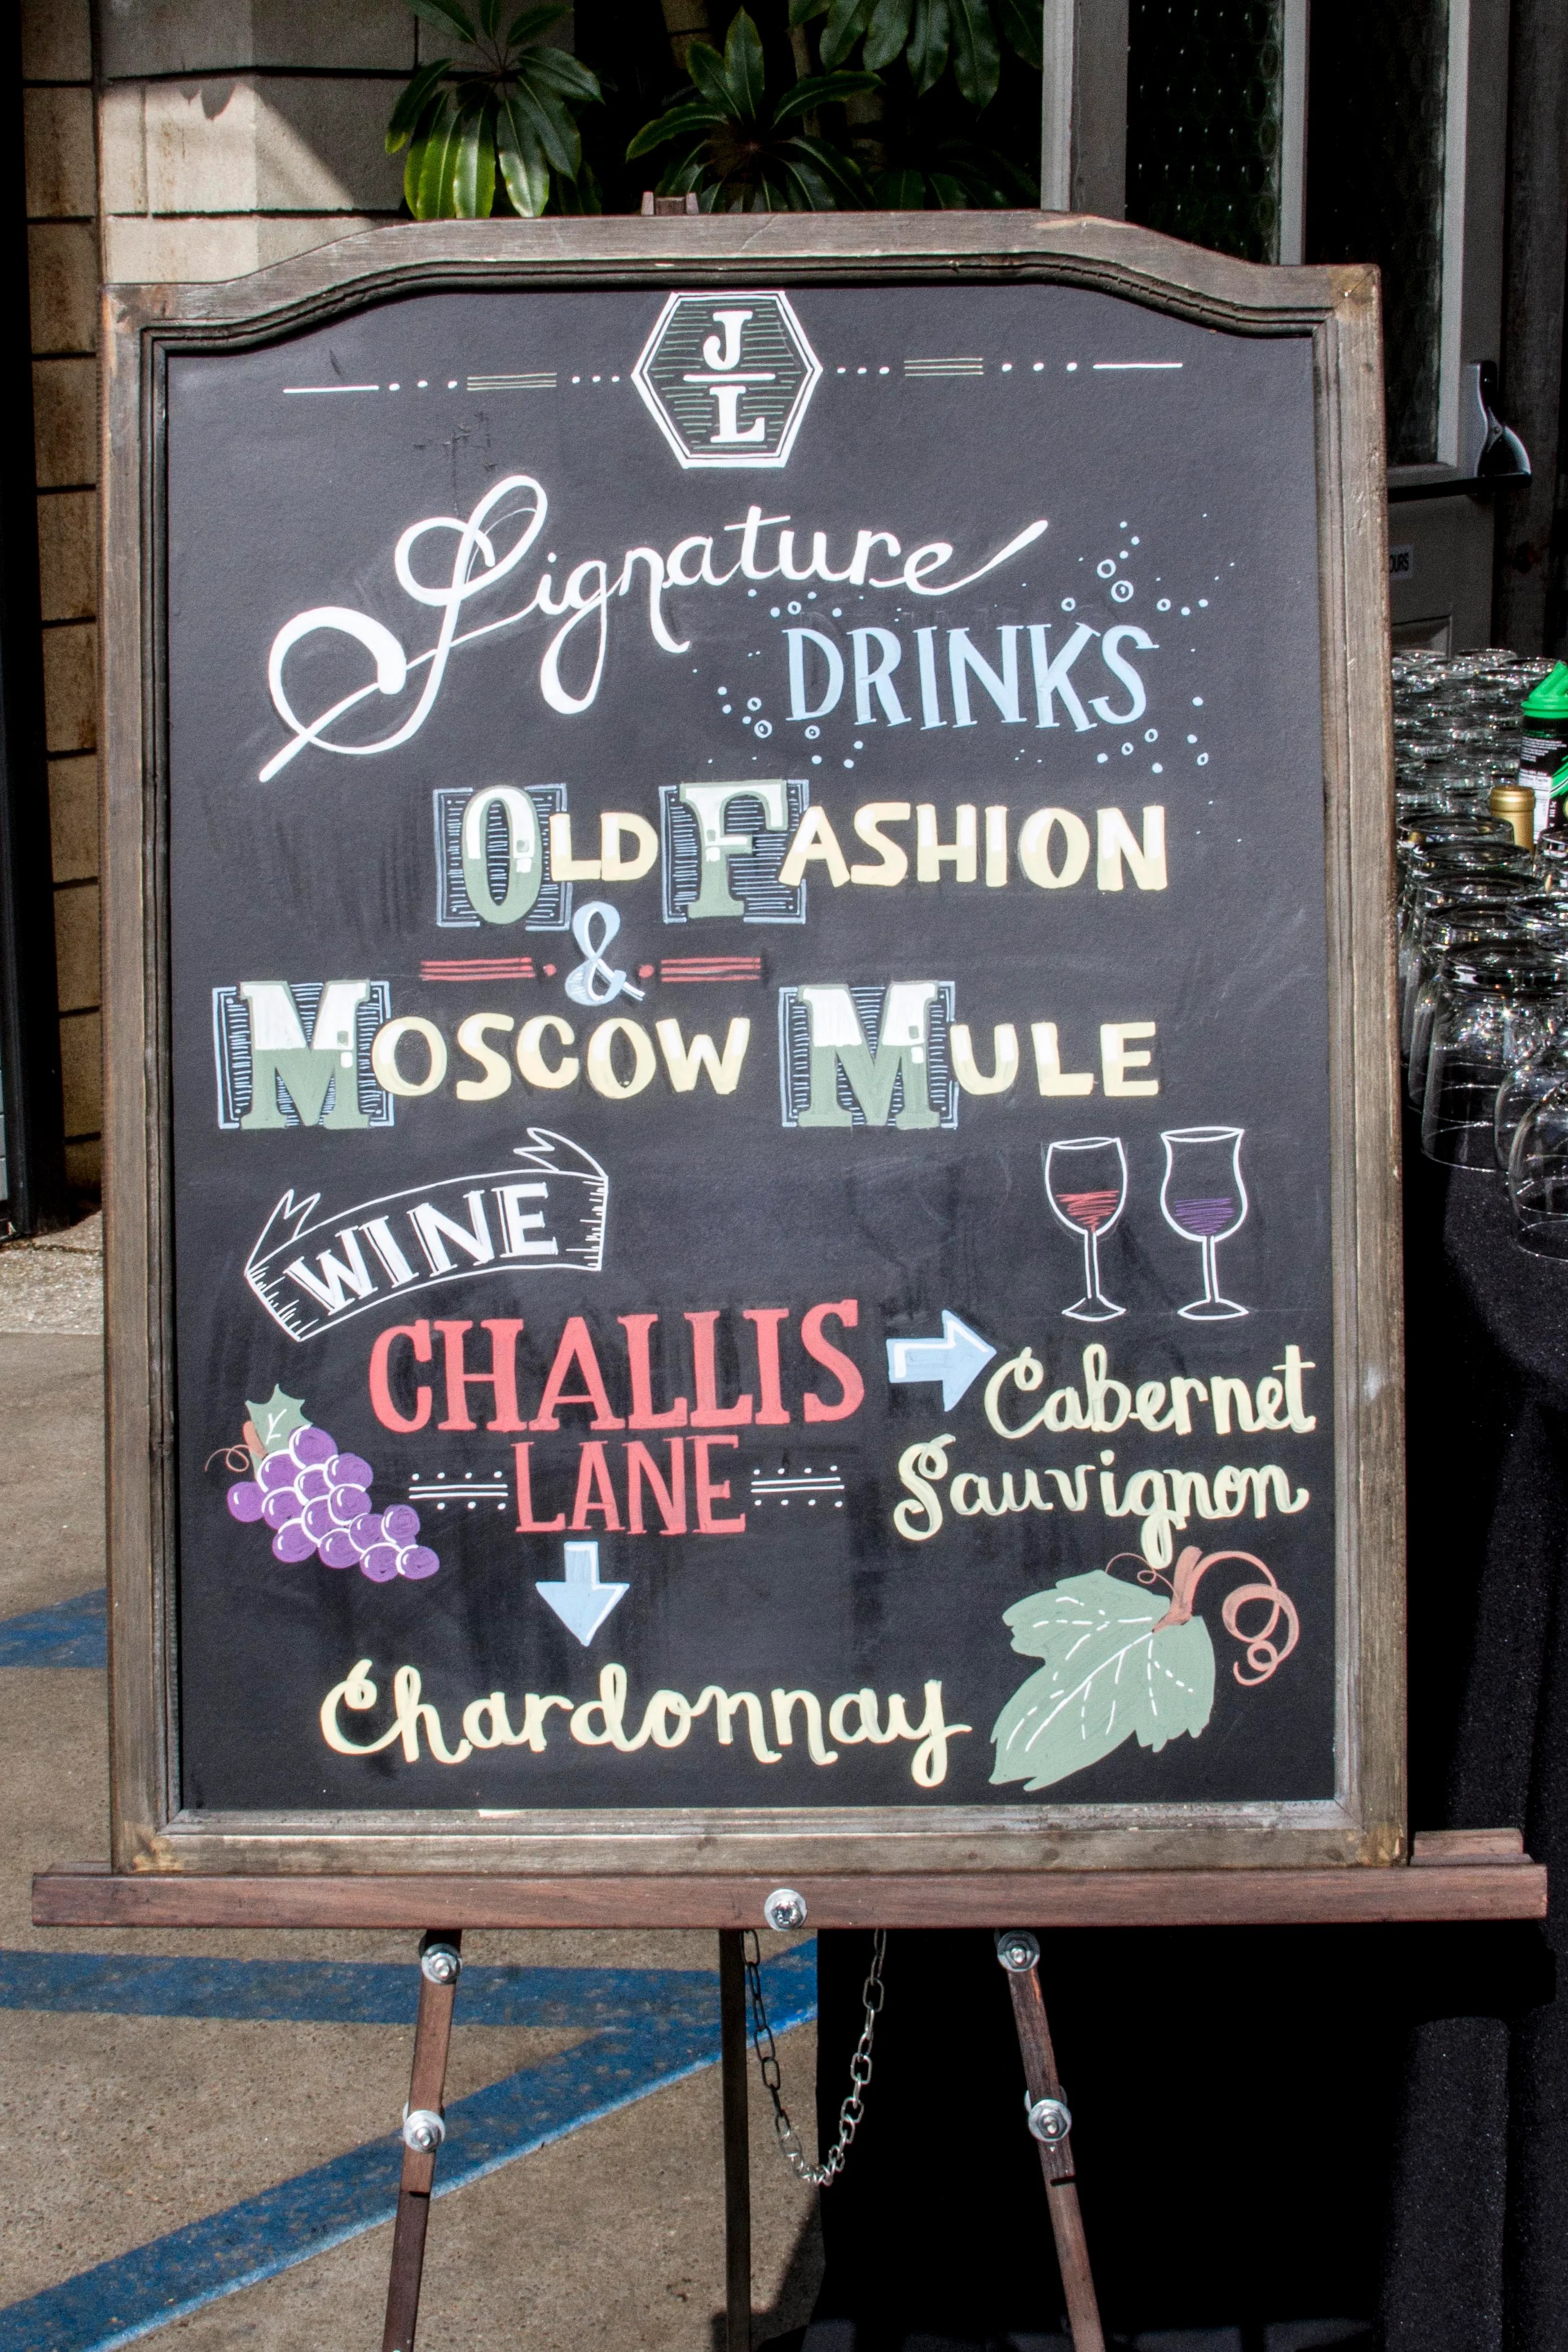 J
L
Signature
DRINKS
OLD FASHION
&
MOSCOW MULE
WINE
CHALLIS
LANE
Cabernet
Sauvignon
Chardonnay